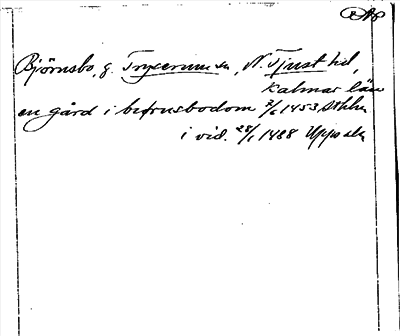 Björnsbo, g. Tryserum sn, N. Tjust hd,
Kalmar län
en gård i befrusbodom 7/6 1453 Sthlm
i vid. 28/1 1488 Uppsala